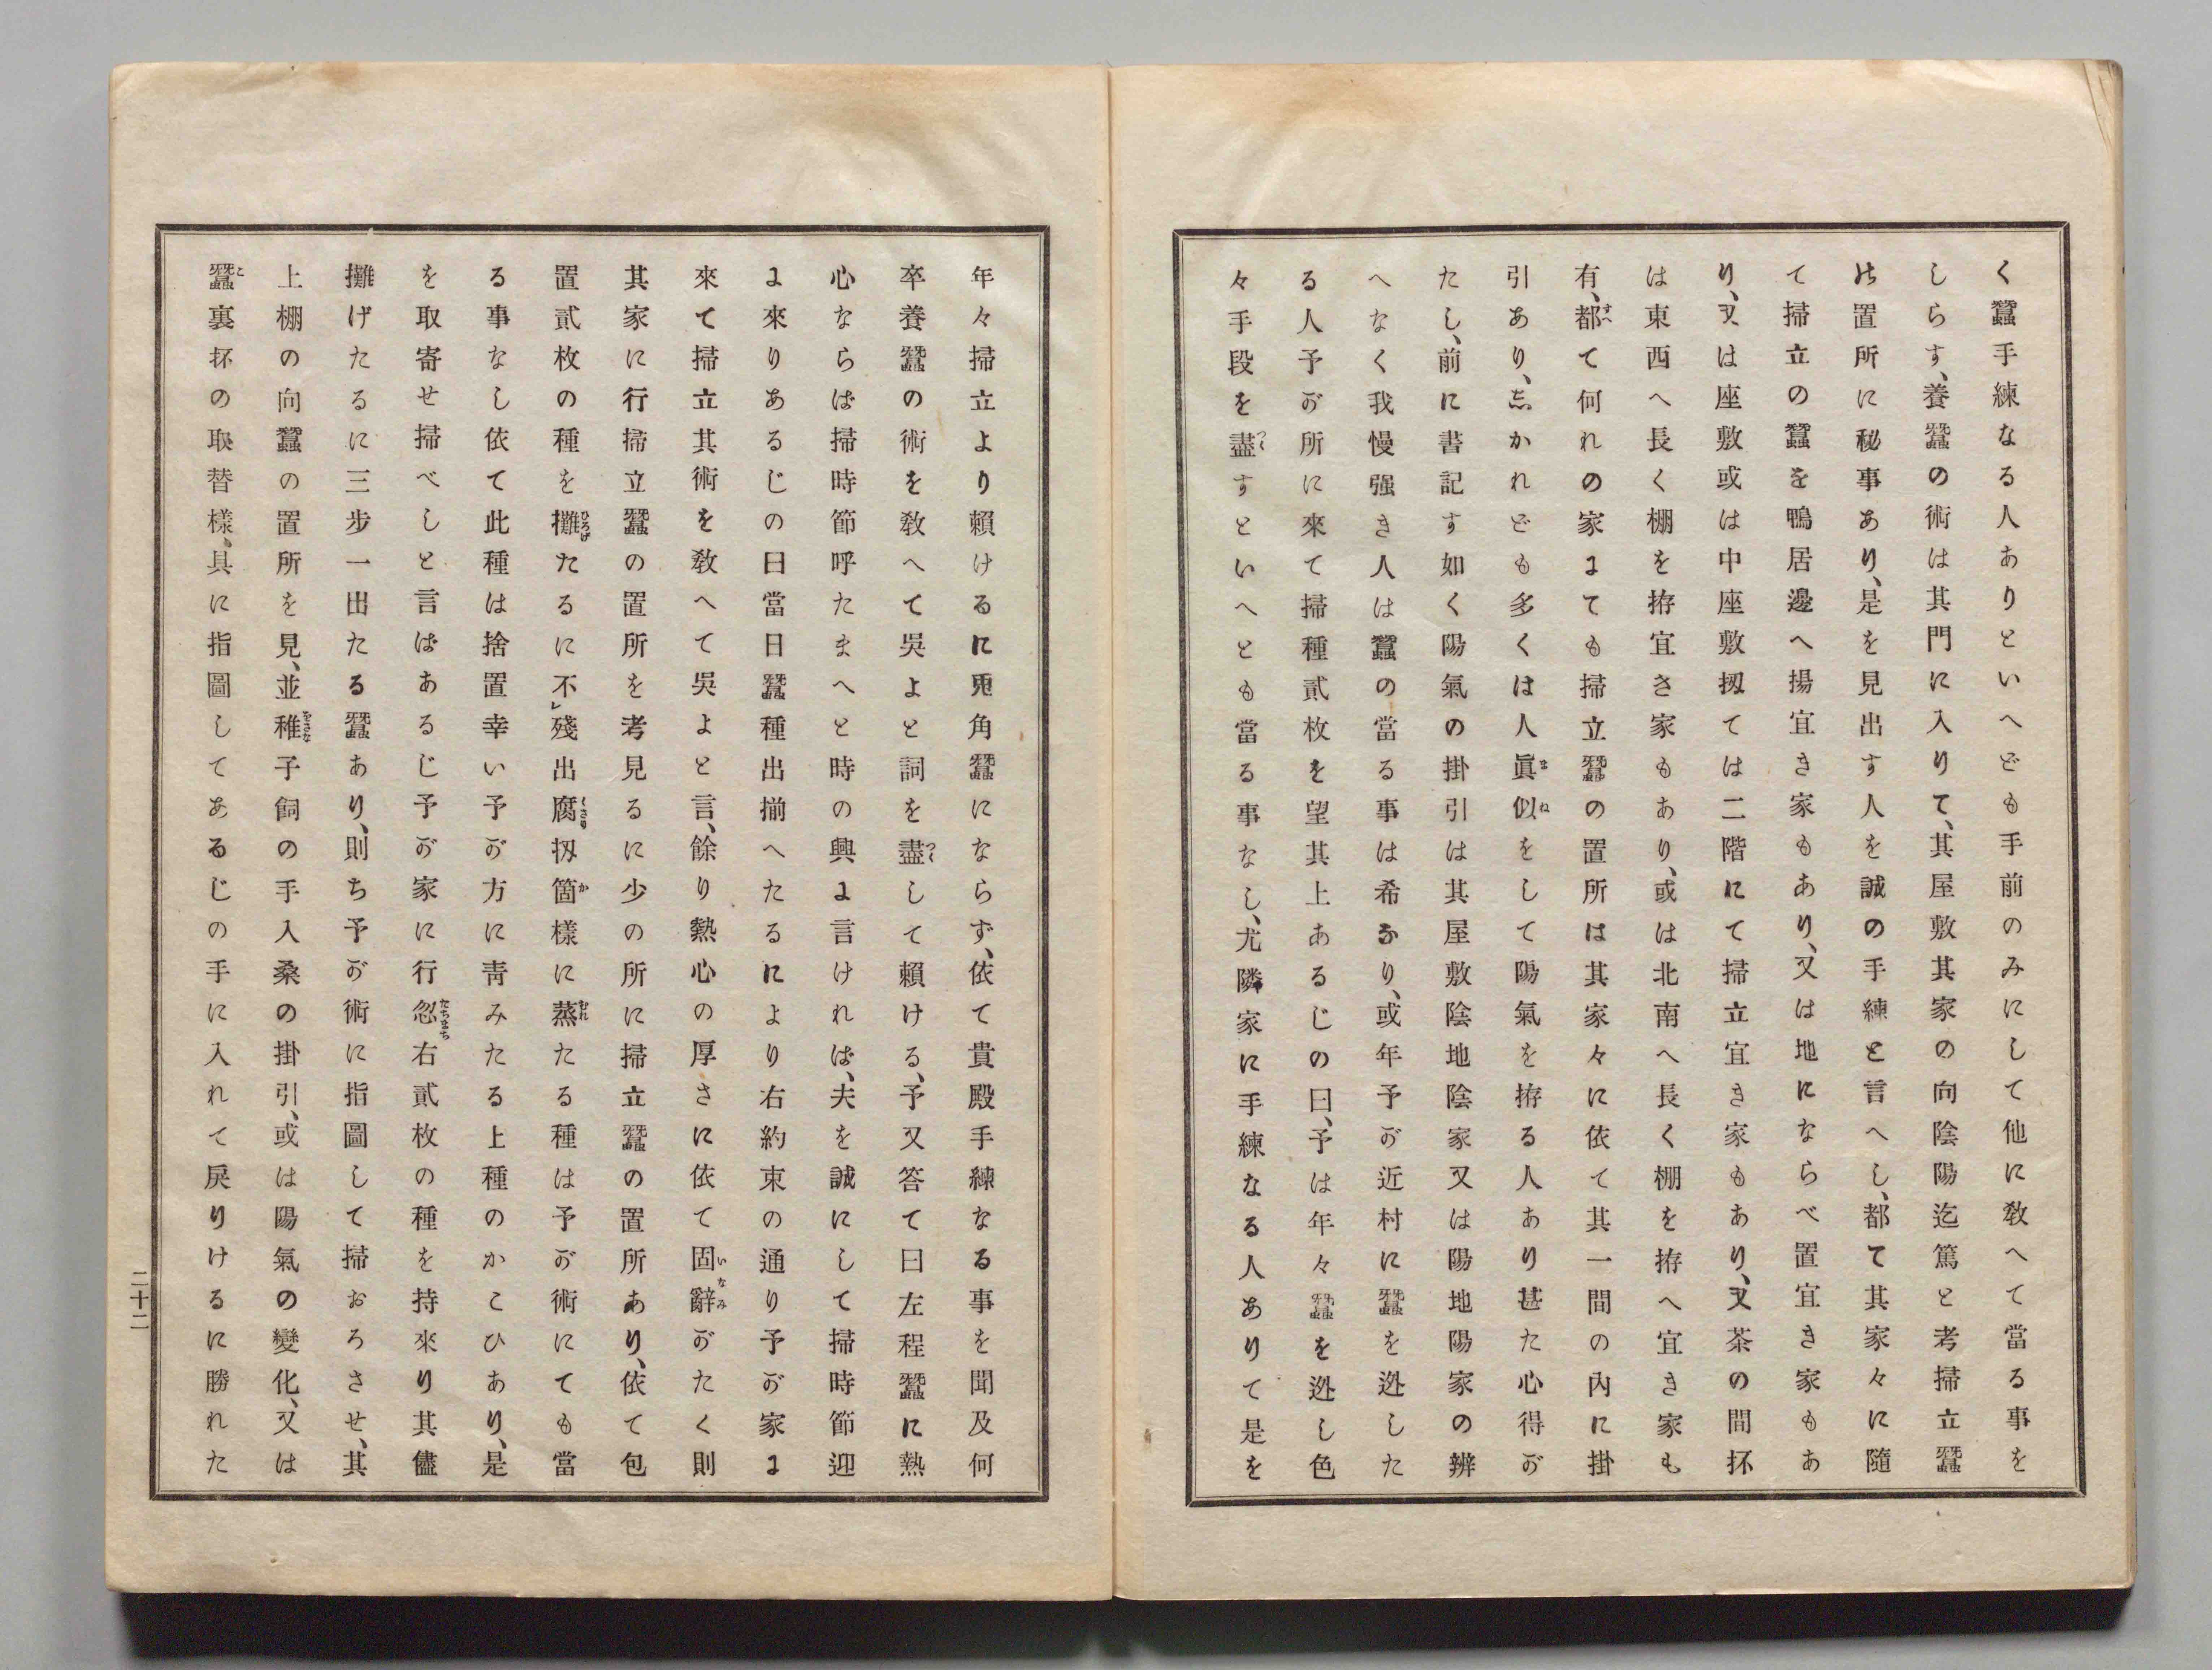 く蠶手練なる人ありといへども手前のみにして他に敎へて當る事を
しらす、養蠶の術は其門に入りて、其屋敷其家の向陰陽迄篤と考掃立蠶
の置所に秘事あり、是を見出す人を誠の手練と言へし、都て其家々に隨
て掃立の蠶を鴨居邊へ揚宜き家もあり、又は地にならべ置宜き家もあ
り、又は座敷或は中座敷扨ては二階にて掃立宜き家もあり、又茶の間抔
は東西へ長く棚を拵宜き家もあり、或は北南へ長く棚を拵へ宜き家も
有、都すべて何れの家にても掃立蠶の置所は其家々に依て其一間の內に掛
引あり、忘かれども多くは人眞ま似ねをして陽氣を拵る人あり甚た心得が
たし、前に書記す如く陽氣の掛引は其屋敷陰地陰家又は陽地陽家の辨
へなく我慢强き人は蠶の當る事は希なり、或年予が近村に蠶を迯した
る人予が所に來て掃種貳枚を望其上あるじの曰、予は年々蠶を迯し色
々手段を盡つくすといへとも當る事なし、尤隣家に手練なる人ありて是を
年々掃立より賴けるに兎角蠶にならず、依て貴殿手練なる事を聞及何
卒養蠶の術を敎へて吳よと詞を盡つくして賴ける、予又答て曰左程蠶に熱
心ならば掃時節呼たまへと時の興に言ければ、夫を誠にして掃時節迎
に來りあるじの曰當日蠶種出揃へたるにより右約束の通り予が家に
來て掃立其術を敎へて吳よと言、餘り熱心の厚さに依て固い辭なみがたく則
其家に行掃立蠶の置所を考見るに少の所に掃立蠶の置所あり、依て包
置貳枚の種を攤ひろげたるに不レ殘出腐くさり扨箇か樣に蒸むれたる種は予が術にても當
る事なし依て此種は捨置幸い予が方に靑みたる上種のかこひあり、是
を取寄せ掃べしと言ばあるじ予が家に行忽たちまち右貳枚の種を持來り其儘
攤げたるに三步一出たる蠶あり、則ち予が術に指圖して掃おろさせ、其
上棚の向蠶の置所を見、並稚をさな子飼の手入桑の掛引、或は陽氣の變化、又は
蠶こ裏抔の取替樣、具に指圖してあるじの手に入れて戾りけるに勝れた
二十二